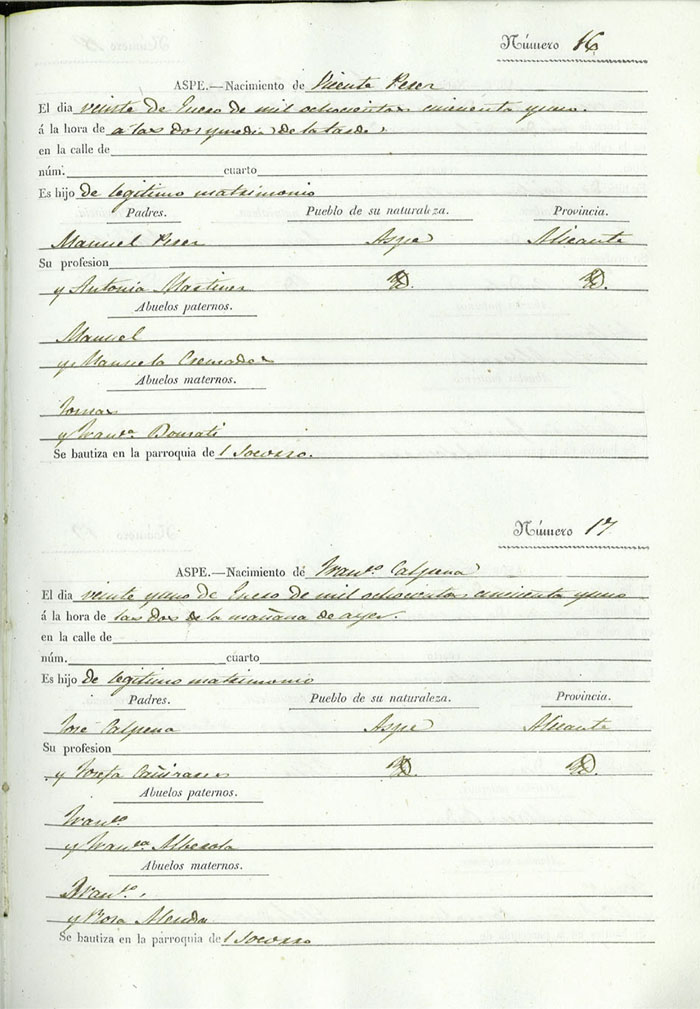 Número 16
ASPE.—Nacimiento de Vicente Perez
El dia veinte de Enero de mil ochocientos cincuenta y uno.
á la hora de a las dos y media de la tarde.
en la calle de
núm. cuarto
Es hijo de legitimo matrimonio
Padres. Pueblo de su naturaleza. Provincia.
Manuel Perez Aspe Alicante
Su profesion
y Antonia Martinez D. D.
Abuelos paternos.
Manuel
y Manuela Cremades
Abuelos maternos.
Tomas
y Fran.ca
Se bautiza en la parroquia de l Socorro.
Número 17
ASPE.—Nacimiento de Fran.co Calpena
El dia veinte y uno de Enero de mil ochocientos cincuenta y uno
á la hora de las dos de la mañana de ayer.
en la calle de
núm. cuarto
Es hijo de legitimo matrimonio
Padres. Pueblo de su naturaleza. Provincia.
José Calpena Aspe Alicante
Su profesion
y Josefa Cañizares D. D.
Abuelos paternos.
Fran.co
y Fran.ca Alberola
Abuelos maternos.
Fran.co
y Rosa
Se bautiza en la parroquia de l Socorro